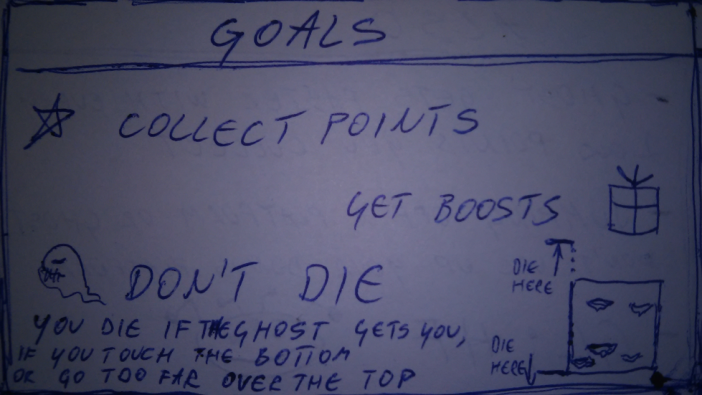 GOALS
COLLECT POINTS
GET BOOSTS
DON'T DIE
DIE
HERE
YOU DIE IF THE GHOST GETS YOU,
IF YOU TOUCH THE BOTTOM
OR GO TOO FAR OVER THE TOP
DIE
HERE